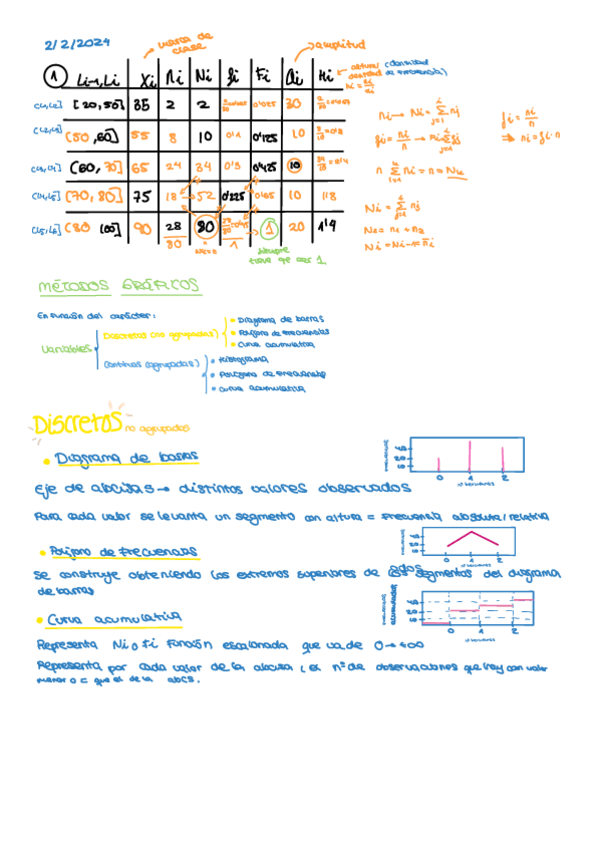 2/2/2024
marca de clase
amplitud
① Li-1,Li Xi ni Ni fi Fi ai Hi
altura (densidad de frecuencia)
[20,50] 35 2 2 0'025 30
(50,60] 55 8 10 0'1 0'125 10
(60,70] 65 24 34 0'3 0'425 10
(70,80] 75 18 52 0'225 10 1'8
(80 100] 90 28 80 1 20 1'4
80 1
siempre tiene que dar 1.
Ni = Σ nj
fi = ni/n
⇒ ni = fi · n
n Σ ni = n = Nk
Ni = Σ nj
N2 = n1 + n2
Ni = Ni-1 + ni
MÉTODOS GRÁFICOS
En función del carácter:
Variables
Discretas (no agrupadas)
• Diagrama de barras
• Polígono de frecuencias
• Curva acumulativa
Continuas (agrupadas)
• Histograma
• Polígono de frecuencias
• Curva acumulativa
DISCRETOS no agrupados
• Diagrama de barras
0 1 2
Eje de abcisas → distintos valores observados
Para cada valor se levanta un segmento con altura = frecuencia absoluta/relativa
• Polígono de frecuencias
0 1 2
Se construye obteniendo los extremos superiores de los segmentos del diagrama
de barras
• Curva acumulativa
0 1 2
Representa Ni o Fi función escalonada que va de 0 → +∞
Representa por cada valor de la abcisa, el nº de observaciones que hay con valor
menor o = que el de la abcs.